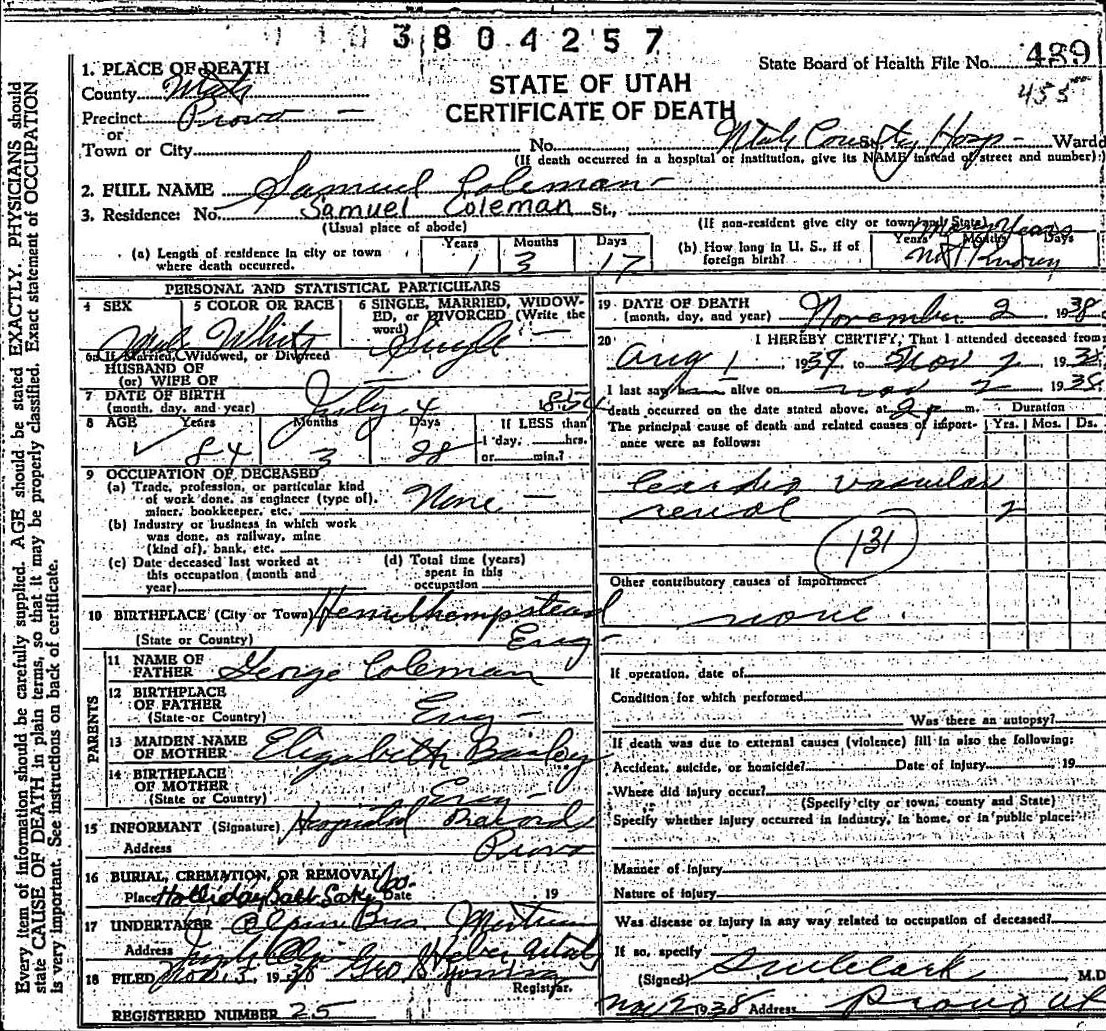 3 8 0 4 2 5 7
State Board of Health File No. 489
455
STATE OF UTAH
CERTIFICATE OF DEATH
1. PLACE OF DEATH
County Utah
Precinct Provo —
or
Town or City No. Utah County Hosp - St., Ward
(If death occurred in a hospital or institution, give its NAME instead of street and number)
2. FULL NAME Samuel Coleman -
3. Residence: No. Samuel Coleman St.,
(Usual place of abode) (If non-resident give city or town and State)
(a) Length of residence in city or town where death occurred. Years 1 Months 3 Days 17
(b) How long in U. S., if of foreign birth? Years Months Days Many Years Not Known
PERSONAL AND STATISTICAL PARTICULARS
4 SEX Male 5 COLOR OR RACE White 6 SINGLE, MARRIED, WIDOWED, or DIVORCED (Write the word) Single —
6a If Married, Widowed, or Divorced
HUSBAND OF
(or) WIFE OF —
7 DATE OF BIRTH
(month, day, and year) July 4 1854
8 AGE Years 84 Months 3 Days 28 If LESS than
1 day, hrs.
or min.?
9 OCCUPATION OF DECEASED
(a) Trade, profession, or particular kind
of work done, as engineer (type of),
miner, bookkeeper, etc. None —
(b) Industry or business in which work
was done, as railway, mine
(kind of), bank, etc.
(c) Date deceased last worked at
this occupation (month and
year)
(d) Total time (years)
spent in this
occupation
10 BIRTHPLACE (City or Town) Hemelhempstead
(State or Country) Eng -
PARENTS
11 NAME OF
FATHER George Coleman
12 BIRTHPLACE
OF FATHER
(State or Country) Eng -
13 MAIDEN NAME
OF MOTHER Elizabeth Bailey
14 BIRTHPLACE
OF MOTHER
(State or Country) Eng -
15 INFORMANT (Signature) Hospital Record
Address Provo
16 BURIAL, CREMATION, OR REMOVAL
Place Holliday Date 19
17 UNDERTAKER Bros.
Address Heber, Utah
18 FILED Nov. 5, 1938 Geo
Registrar.
REGISTERED NUMBER 25
19 DATE OF DEATH
(month, day, and year) November 2 1938
20 I HEREBY CERTIFY, That I attended deceased from
Aug 1 1937, to Nov 2 1938
I last saw him alive on Nov 2 1938
death occurred on the date stated above, at 2 p m.
The principal cause of death and related causes of importance were as follows:
Duration
Yrs. Mos. Ds.
Cardio vascular
renal 2
131
Other contributory causes of importance:
none.
If operation, date of
Condition for which performed
Was there an autopsy?
If death was due to external causes (violence) fill in also the following:
Accident, suicide, or homicide? Date of injury 19
Where did injury occur?
(Specify city or town, county and State)
Specify whether injury occurred in industry, in home, or in public place:
Manner of injury
Nature of injury
Was disease or injury in any way related to occupation of deceased?
If so, specify
(Signed) Clark M.D
Nov 2 1938 Address Provo Ut
Every item of information should be carefully supplied. AGE should be stated EXACTLY. PHYSICIANS should
state CAUSE OF DEATH in plain terms, so that it may be properly classified. Exact statement of OCCUPATION
is very important. See instructions on back of certificate.